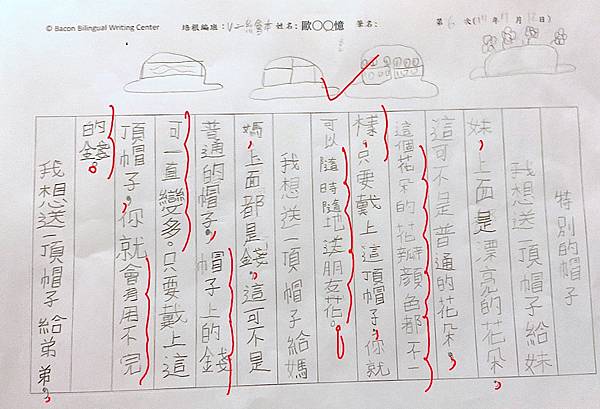 © Bacon Bilingual Writing Center
培根編班：V-一繪本 姓名：歐〇〇憶 筆名：
第 6 次( 111 年 11 月 12 日)
特別的帽子
我想送一頂帽子給妹
妹，上面是漂亮的花朵，
這可不是普通的花朵。
這個花朵的花瓣顏色都不一
樣，只要戴上這頂帽子，你就
可以隨時隨地送朋友花。
我想送一頂帽子給媽
媽，上面都是錢。這可不是
普通的帽子，帽子上的錢
可一直變多。只要戴上這
頂帽子，你就會有用不完
的錢。
我想送一頂帽子給弟弟，